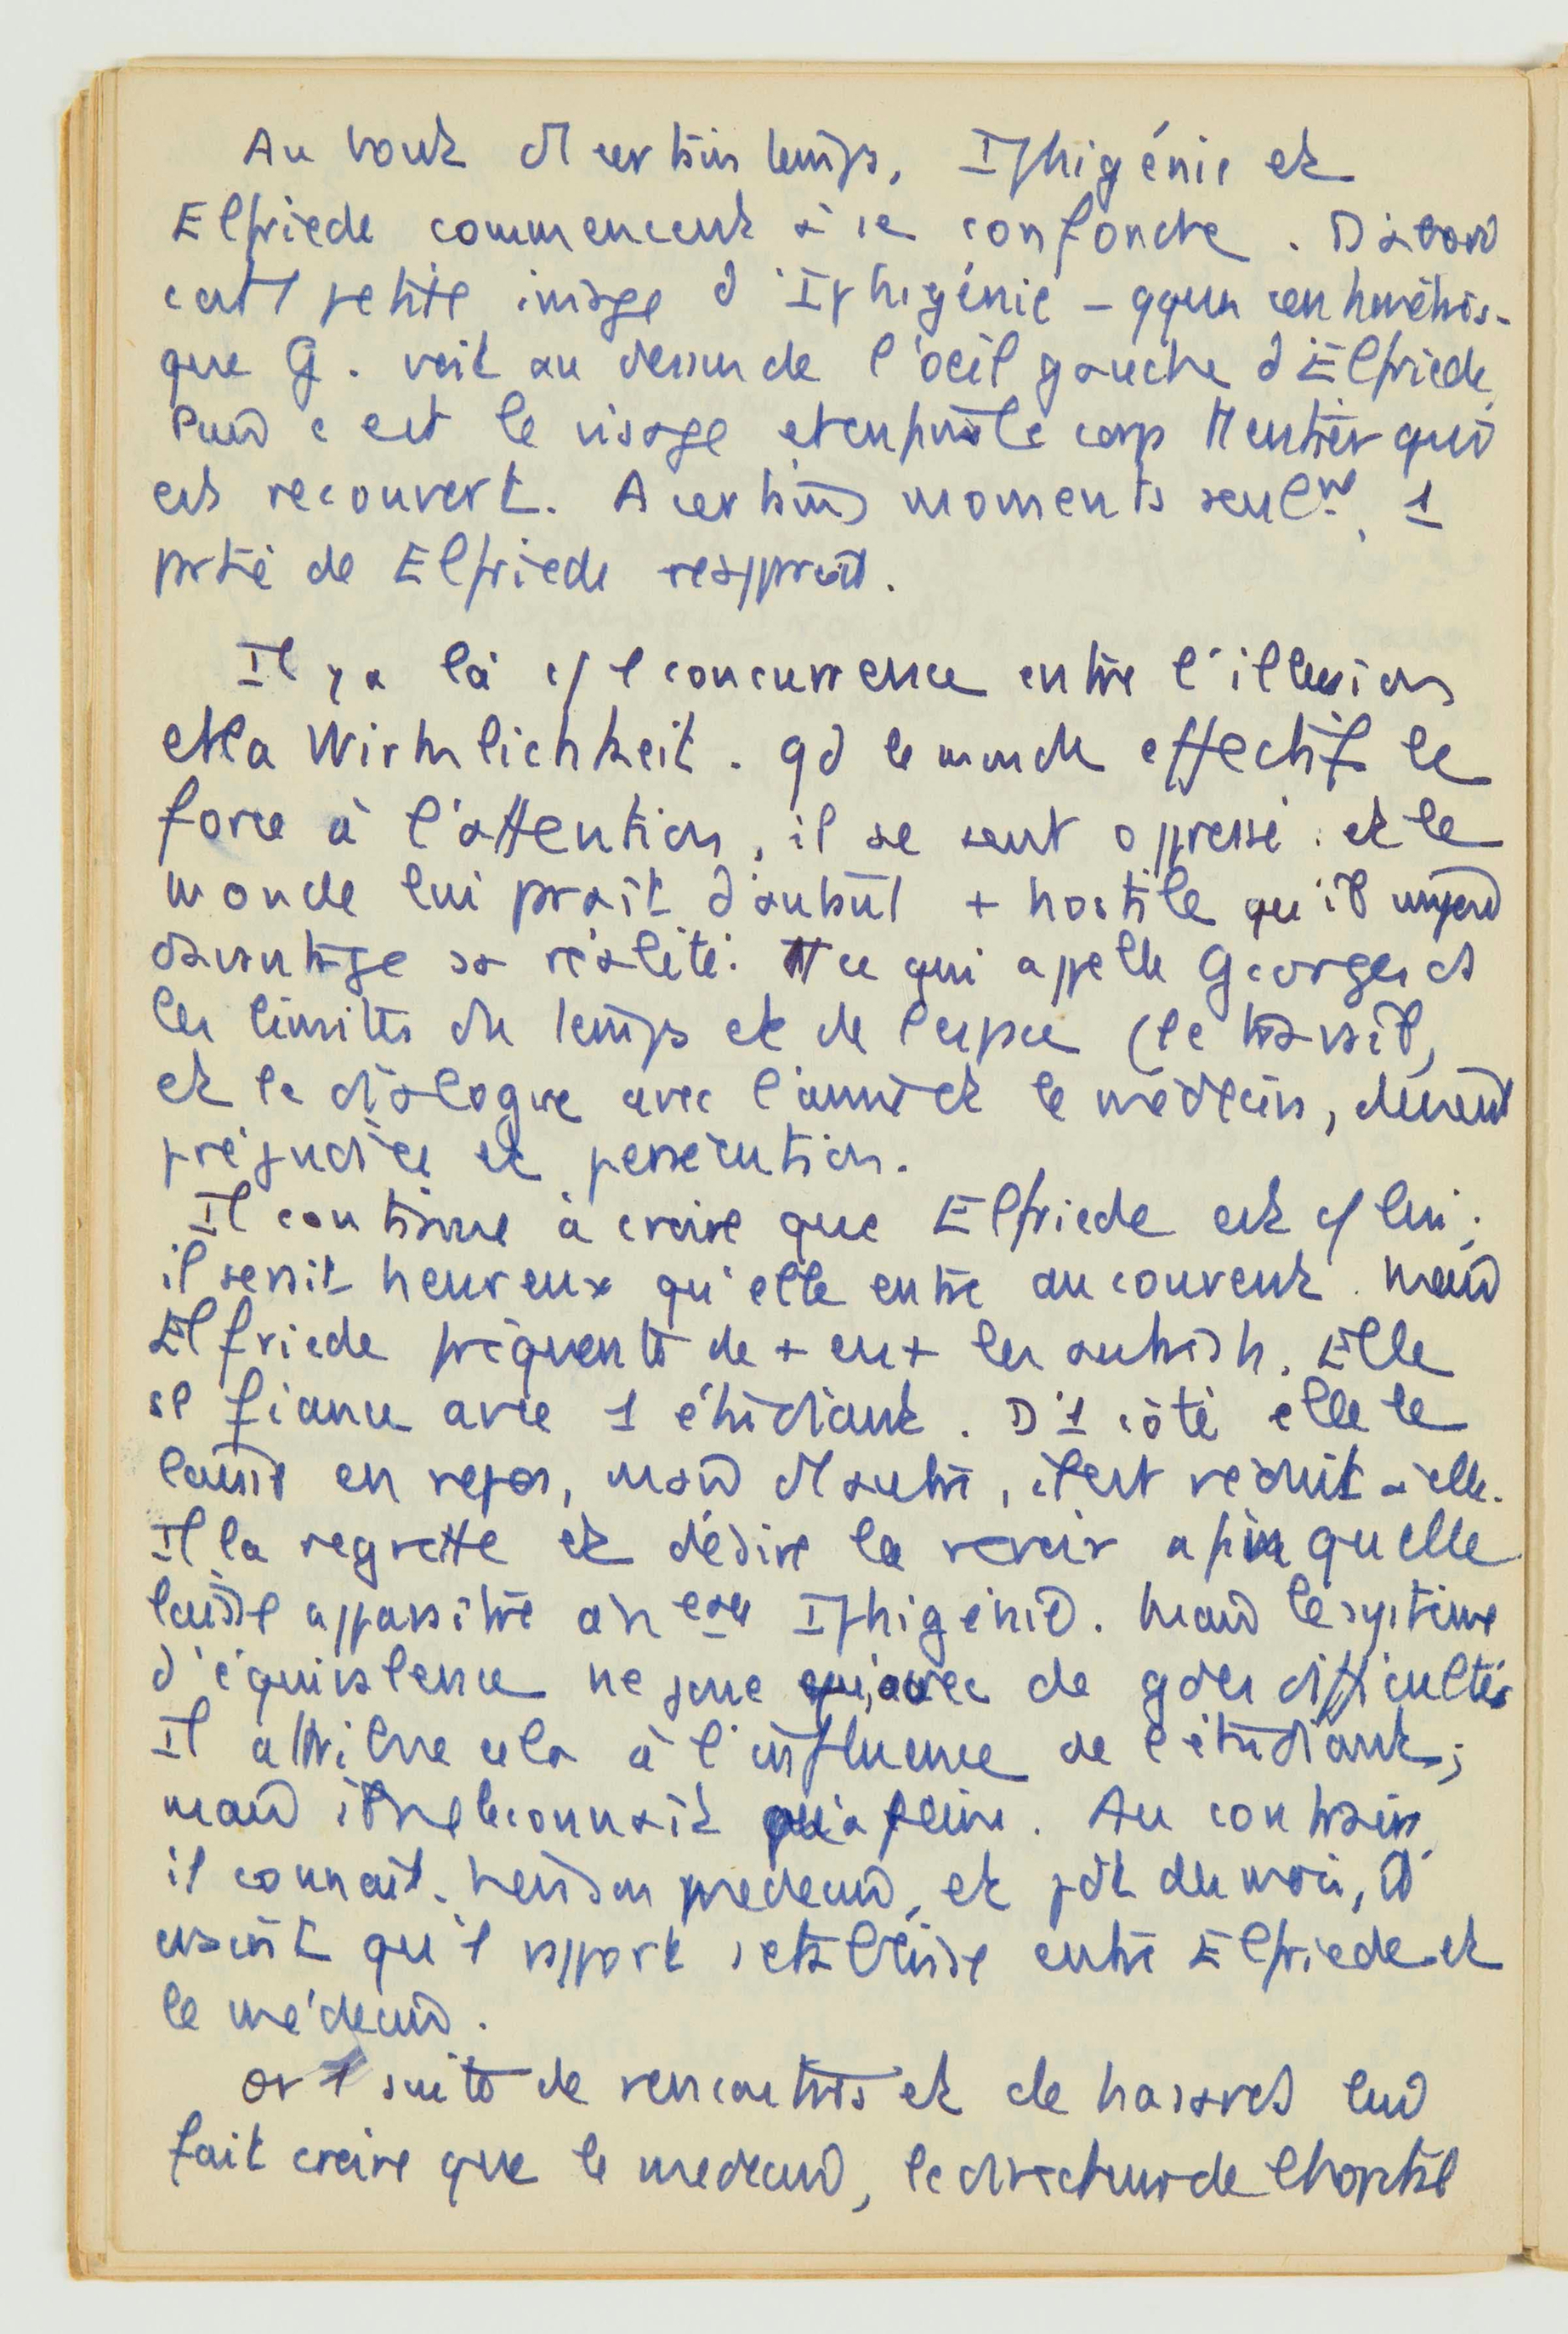 Au bout d'1 certain temps, Iphigénie et
Elfriede commencent à se confondre. D'abord
c'est 1 petite image d'Iphigénie – qqun
que G. voit au dessus de l'oeil gauche d'Elfriede,
Puis c'est le visage et enfin le corps tt entier qui
est recouvert. A certains moments seulmt, 1
prtie de Elfriede réapprait.
Il y a là c/ 1 concurrence entre l'illusion
et la Wirklichkeit. qd le monde effectif le
force à l'attention, il se sent oppressé. et le
monde lui prait d'autant + hostile qu'il
davantage sa réalité. Tt ce qui appelle Georges ds
les limites du temps et de l'espace (le travail,
et le dialogue avec l'ami et le médecin, devient
préjudice et persécution.
Il continue à croire que Elfriede est c/ lui;
il serait heureux qu'elle entre au couvent. Mais
Elfriede fréquente de + en + les autres h. Elle
se fiance avec 1 étudiant. D'1 côté elle le
laisse en repos, mais d'1 autre, il est réduit à elle.
Il la regrette et désire la revoir afin quelle
laisse apparaître à nveau Iphigénie. Mais le système
d'équivalence ne joue qu'avec de gdes difficultés
Il attribue cela à l'influence de l'étudiant;
mais il ne le connait qu'à peine. Au contraire
il connait son médecin, et
craint qu'1 rapport s'établisse entre Elfriede et
le médecin.
or 1 suite de rencontres et de hasards lui
fait croire que le médecin, le directeur de l'hopital